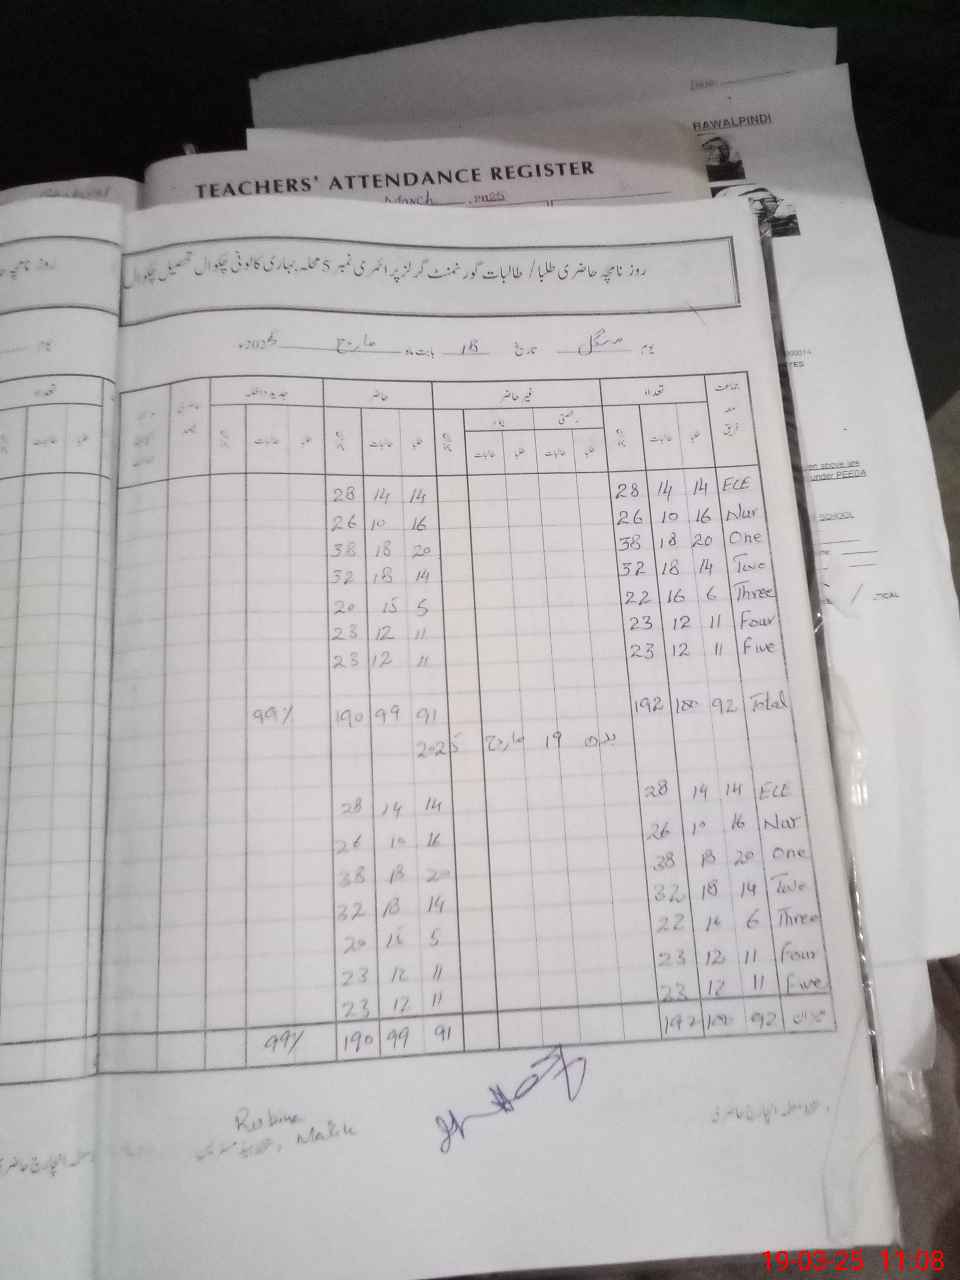 RAWALPINDI
TEACHERS' ATTENDANCE REGISTER
March 2025
روز نامچہ حاضری طلبا / طالبات گورنمنٹ گرلز پرائمری نمبر 5 محلہ بہاری کالونی چکوال تحصیل چکوال
یوم منگل تاریخ 18 بابت ماہ مارچ 2025ء
جماعت تعداد غیر حاضر حاضر جدید داخلہ
طلبا طالبات
ECE 14 14 28 14 14 28
Nur 16 10 26 16 10 26
One 20 18 38 20 18 38
Two 14 18 32 14 18 32
Three 6 16 22 5 15 20
Four 11 12 23 11 12 23
Five 11 12 23 11 12 23
Total 92 100 192 91 99 190 99%
بدھ 19 مارچ 2025
ECE 14 14 28 14 14 28
Nur 16 10 26 16 10 26
One 20 18 38 20 18 38
Two 14 18 32 14 18 32
Three 6 16 22 5 15 20
Four 11 12 23 11 12 23
Five 11 12 23 11 12 23
92 100 192 91 99 190 99%
Rubina
Malik
en above are
under PEEDA
SCHOOL
19-03-25 11:08